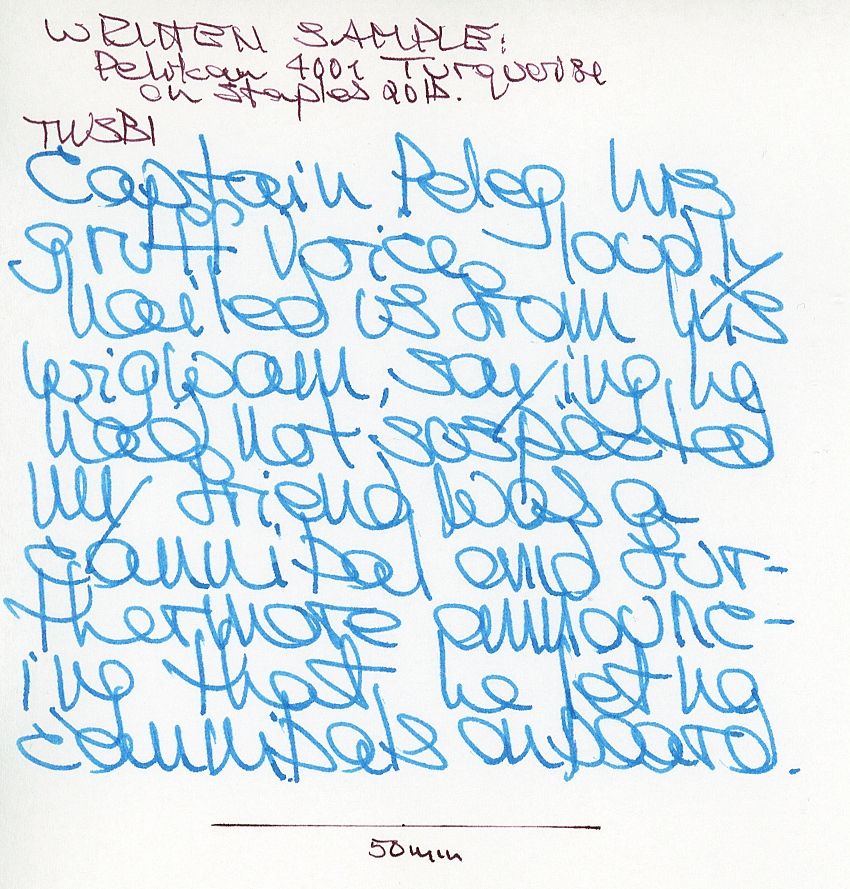 WRITTEN SAMPLE:
Pelikan 4001 Turquoise
on Staples 20lb.
TWSBI
Captain Peleg his
gruff voice loudly
hailed us from his
wigwam, saying he
had not suspected
my friend was a
cannibal and fur-
thermore announc-
ing that he let no
cannibals onboard.
50mm